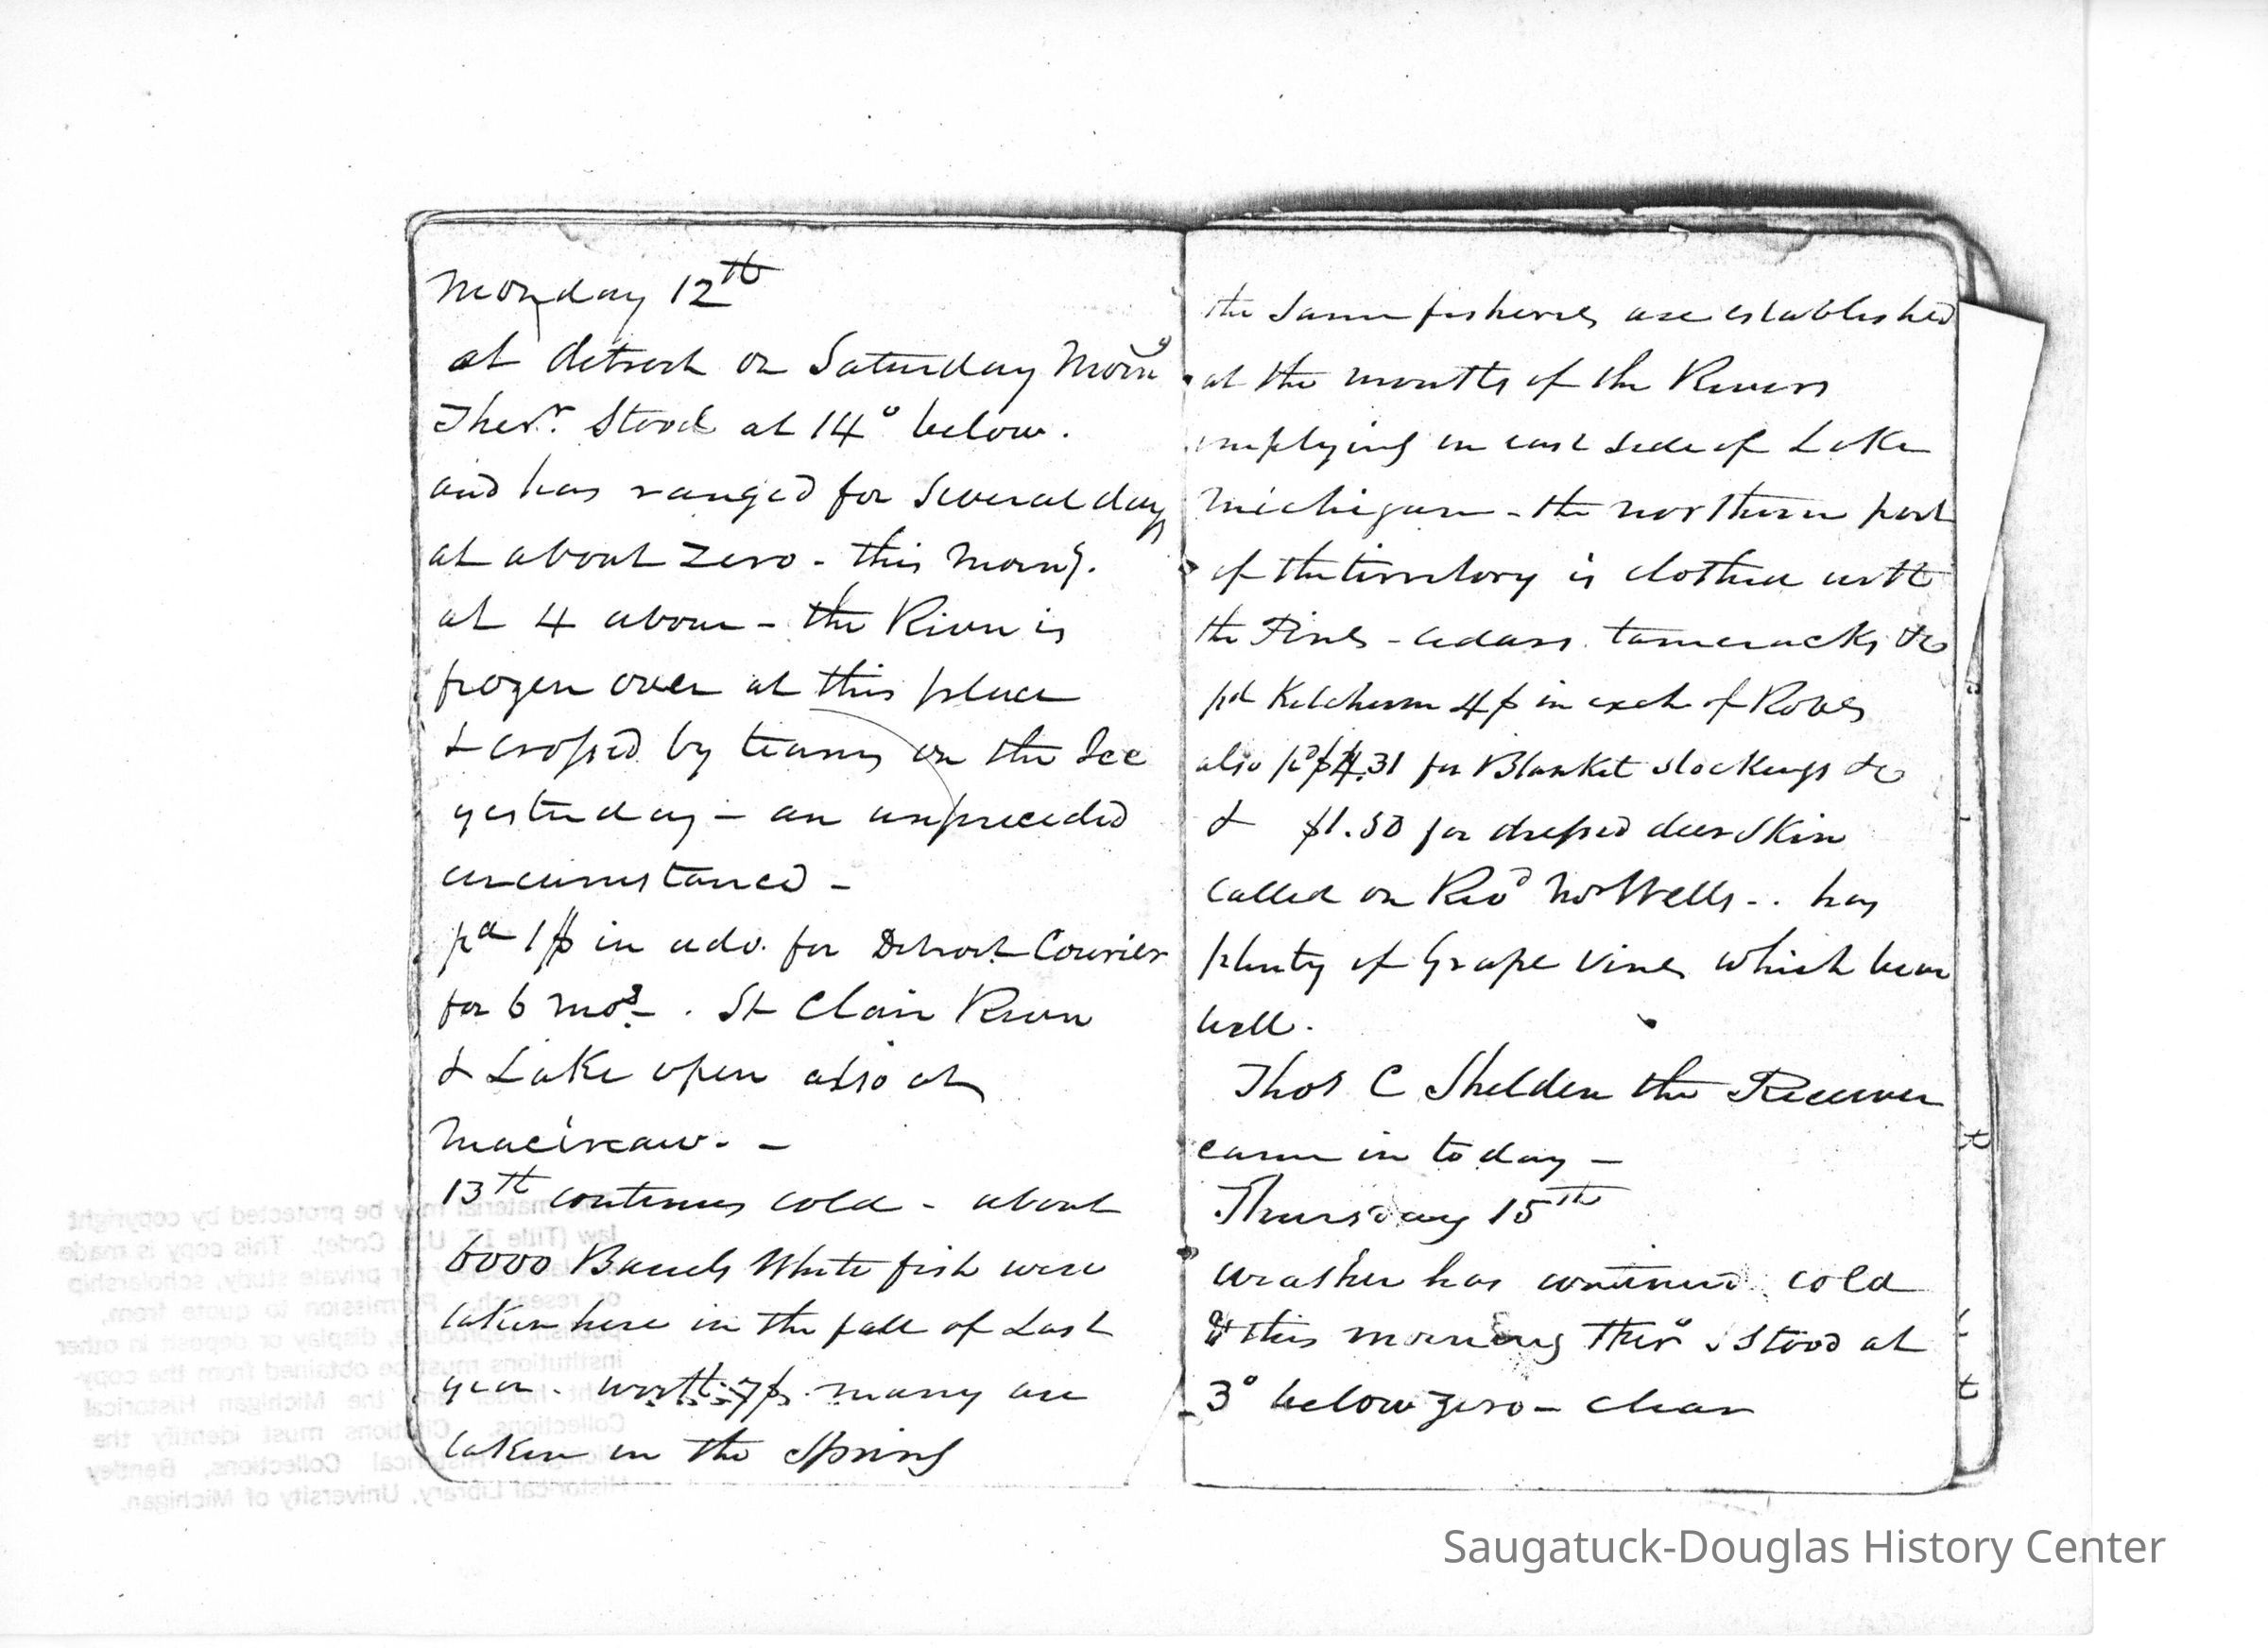 Monday 12th
at detroit on Saturday Morng
Therr. Stood at 14° below.
and has ranged for Several days
at about Zero - this Morng.
at 4 above - the River is
frozen over at this place
& crossed by teams on the Ice
yesterday - an unpreceded
circumstance -
pd 1$ in adv. for Detroit Courier
for 6 mos. St Clair River
& Lake open also at
Macinaw. -
13th continues cold - about
6000 Barrels White fish were
taken here in the fall of Last
year - worth 7$. many are
taken in the Spring
the Same fisheries are established
at the mouths of the Rivers
emptying in east side of Lake
Michigan - the northern part
of the territory is clothed with
the Pines - cedars. tameracks &c
pd Ketchum 4$ in exch of Robes
also pd $4.31 for Blanket stockings &c
& $1.50 for dressed deer Skin
Called on Revd Mr Wells - . has
plenty of Grape vines which bear
well.
Thos C Shelden the Receiver
came in today -
Thursday 15th
weather has continued cold
& this morning Ther stood at
3° below zero - clear
This material may be protected by copyright
law (Title 17 U.S. Code). This copy is made
private study, scholarship
or research. Permission to quote from,
publish, reproduce, display or deposit in other
institutions must be obtained from the copy-
right holder and the Michigan Historical
Collections. Citations must identify the
Michigan Historical Collections, Bentley
Historical Library, University of Michigan.
Saugatuck-Douglas History Center